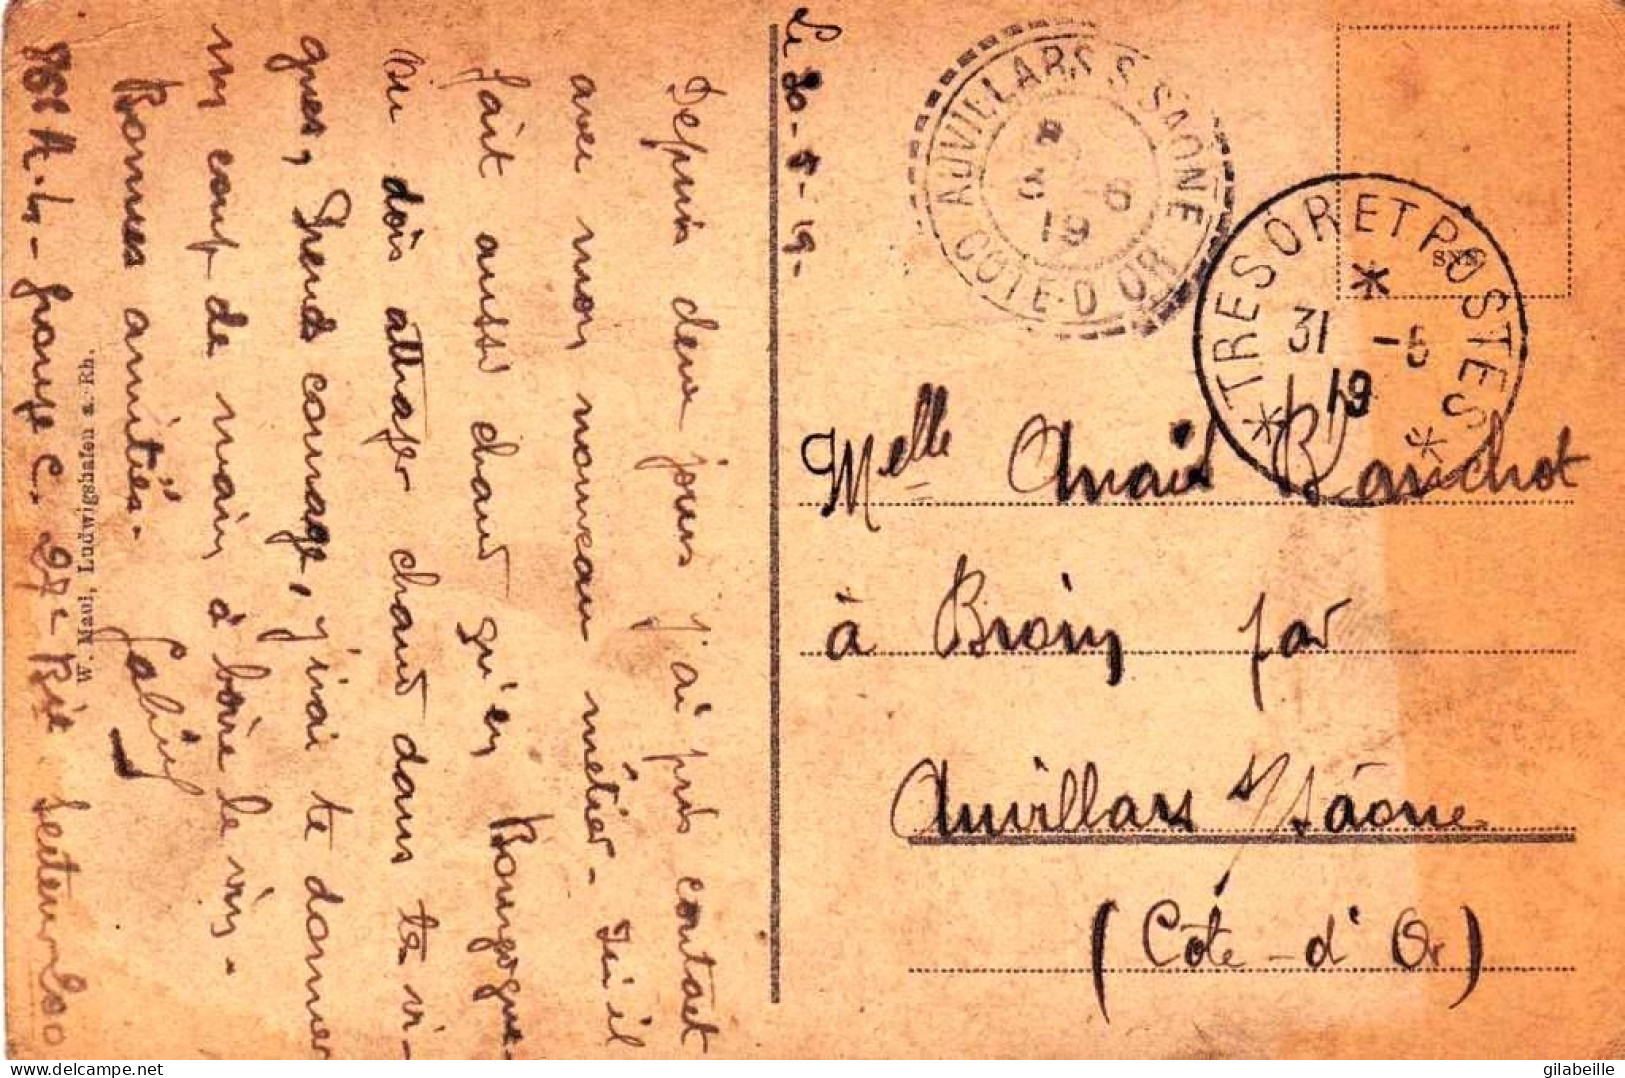 Le 30-5-19.
Depuis deux jours j'ai pris contact
avec mon nouveau métier. Ici il
fait aussi chaud qu'en Bourgogne.
Tu dois attraper chaud dans tes vi-
gnes, Prends courage, j'irai te donner
un coup de main à boire le vin.
Bonnes amitiés.
A.L. C. 27e Bie Secteur 200
W. Maul, Ludwigshafen a. Rh.
AUVILLARS S. SAONE
COTE-D'OR
19
TRESOR ET POSTES
31 -5
19
Melle Anaïs Bauchot
à Broin par
Auvillars s/Saône
(Côte-d'Or)
delcampe.net
gilabeille